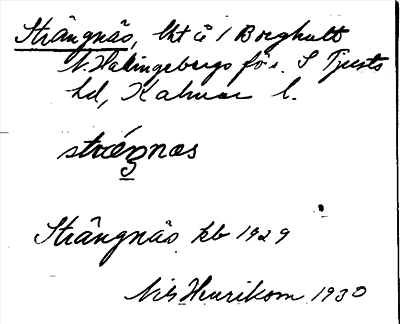 Strängnäs, lht å 1 Borghult
N. Hallingebergs förs. S Tjusts
hd, Kalmar l.
stræŋnæs
Strängnäs kb 1929
Nils Henrikson 1930